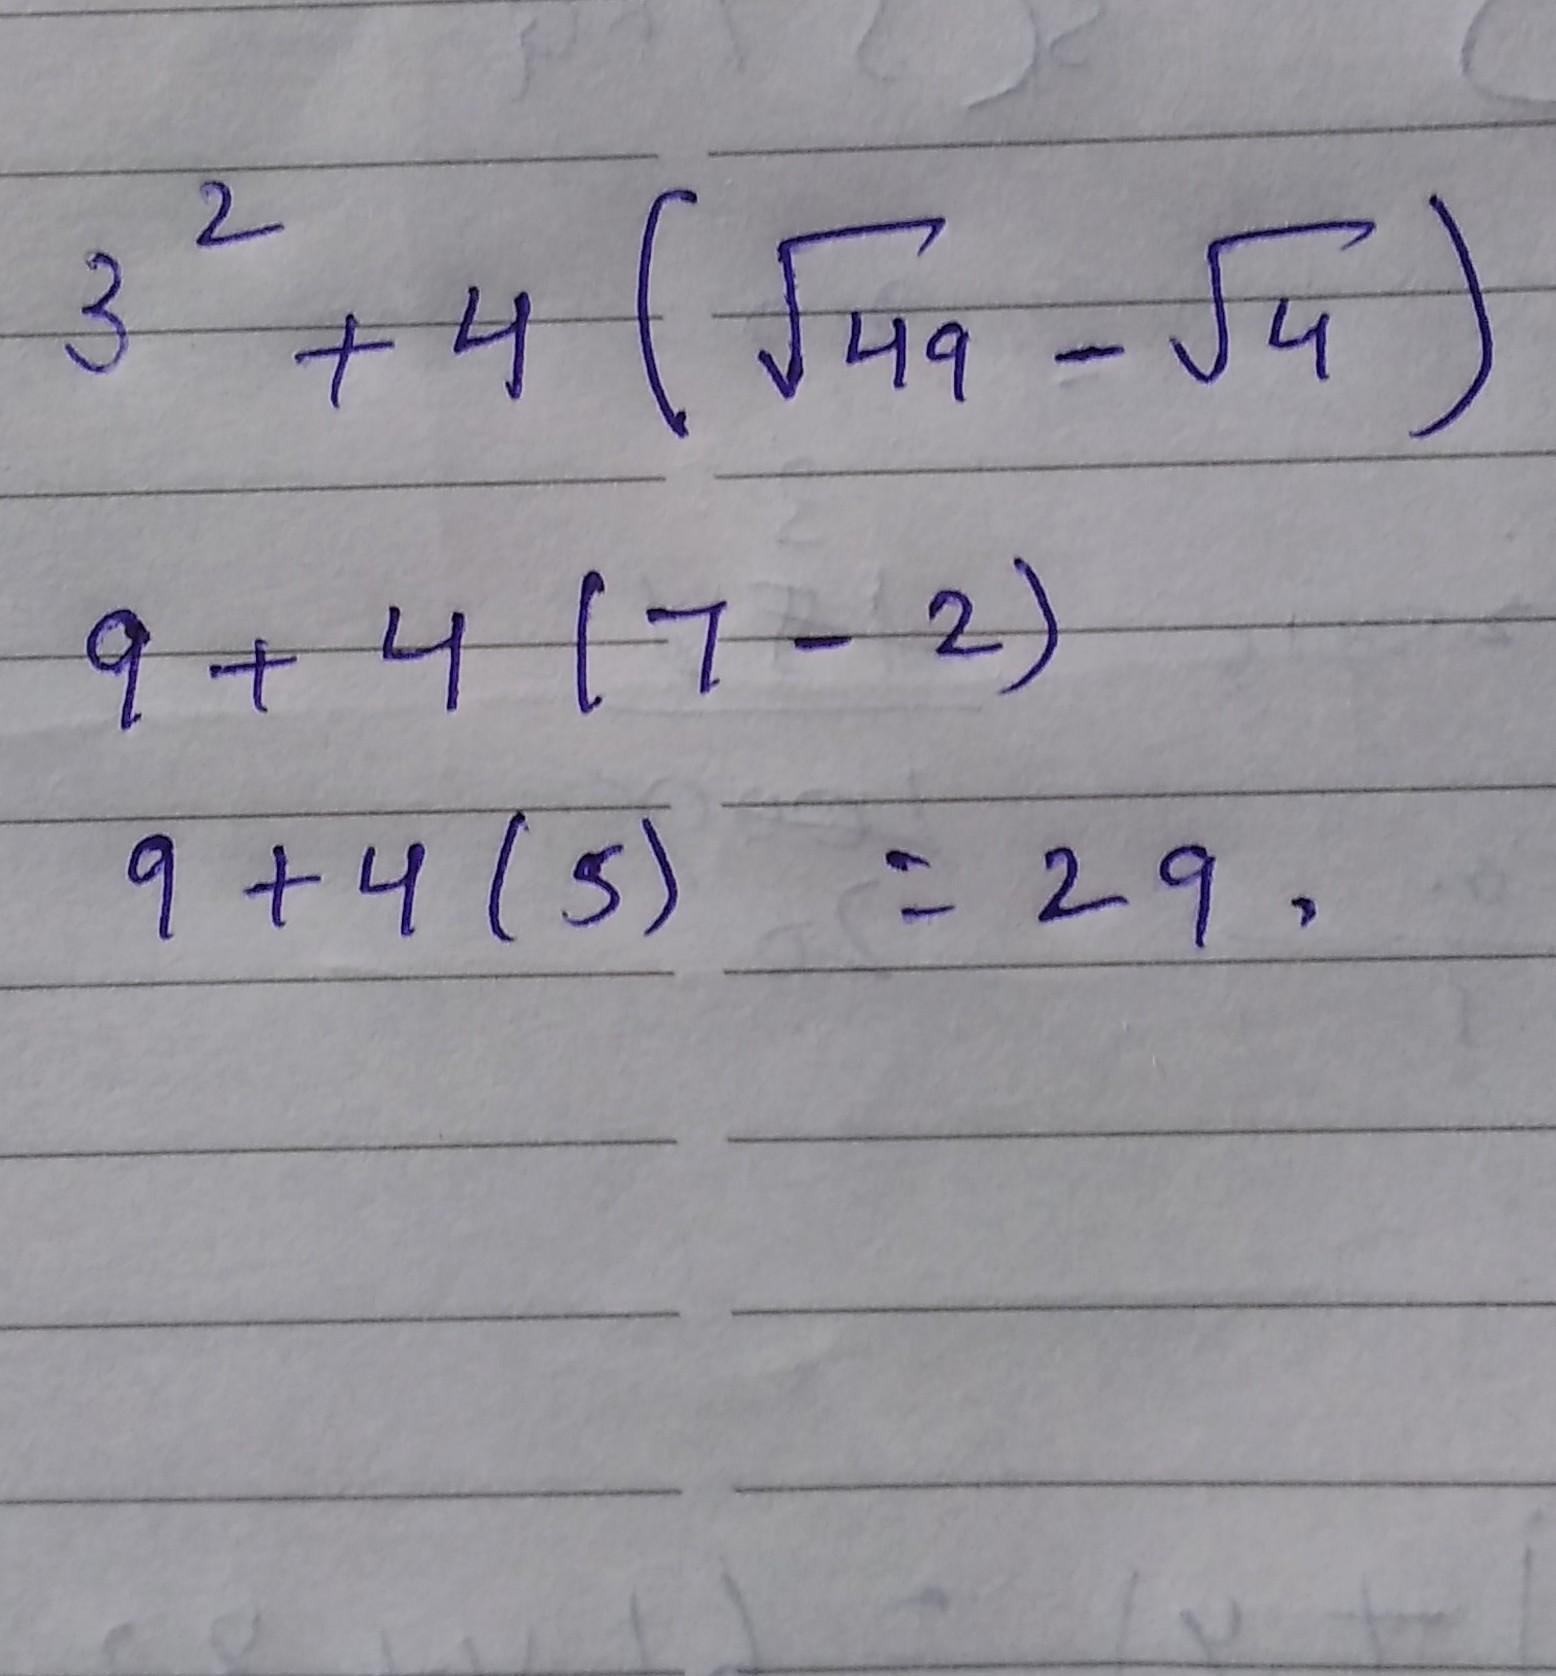 3² + 4 (√49 - √4)
9 + 4 (7 - 2)
9 + 4 (5) = 29.